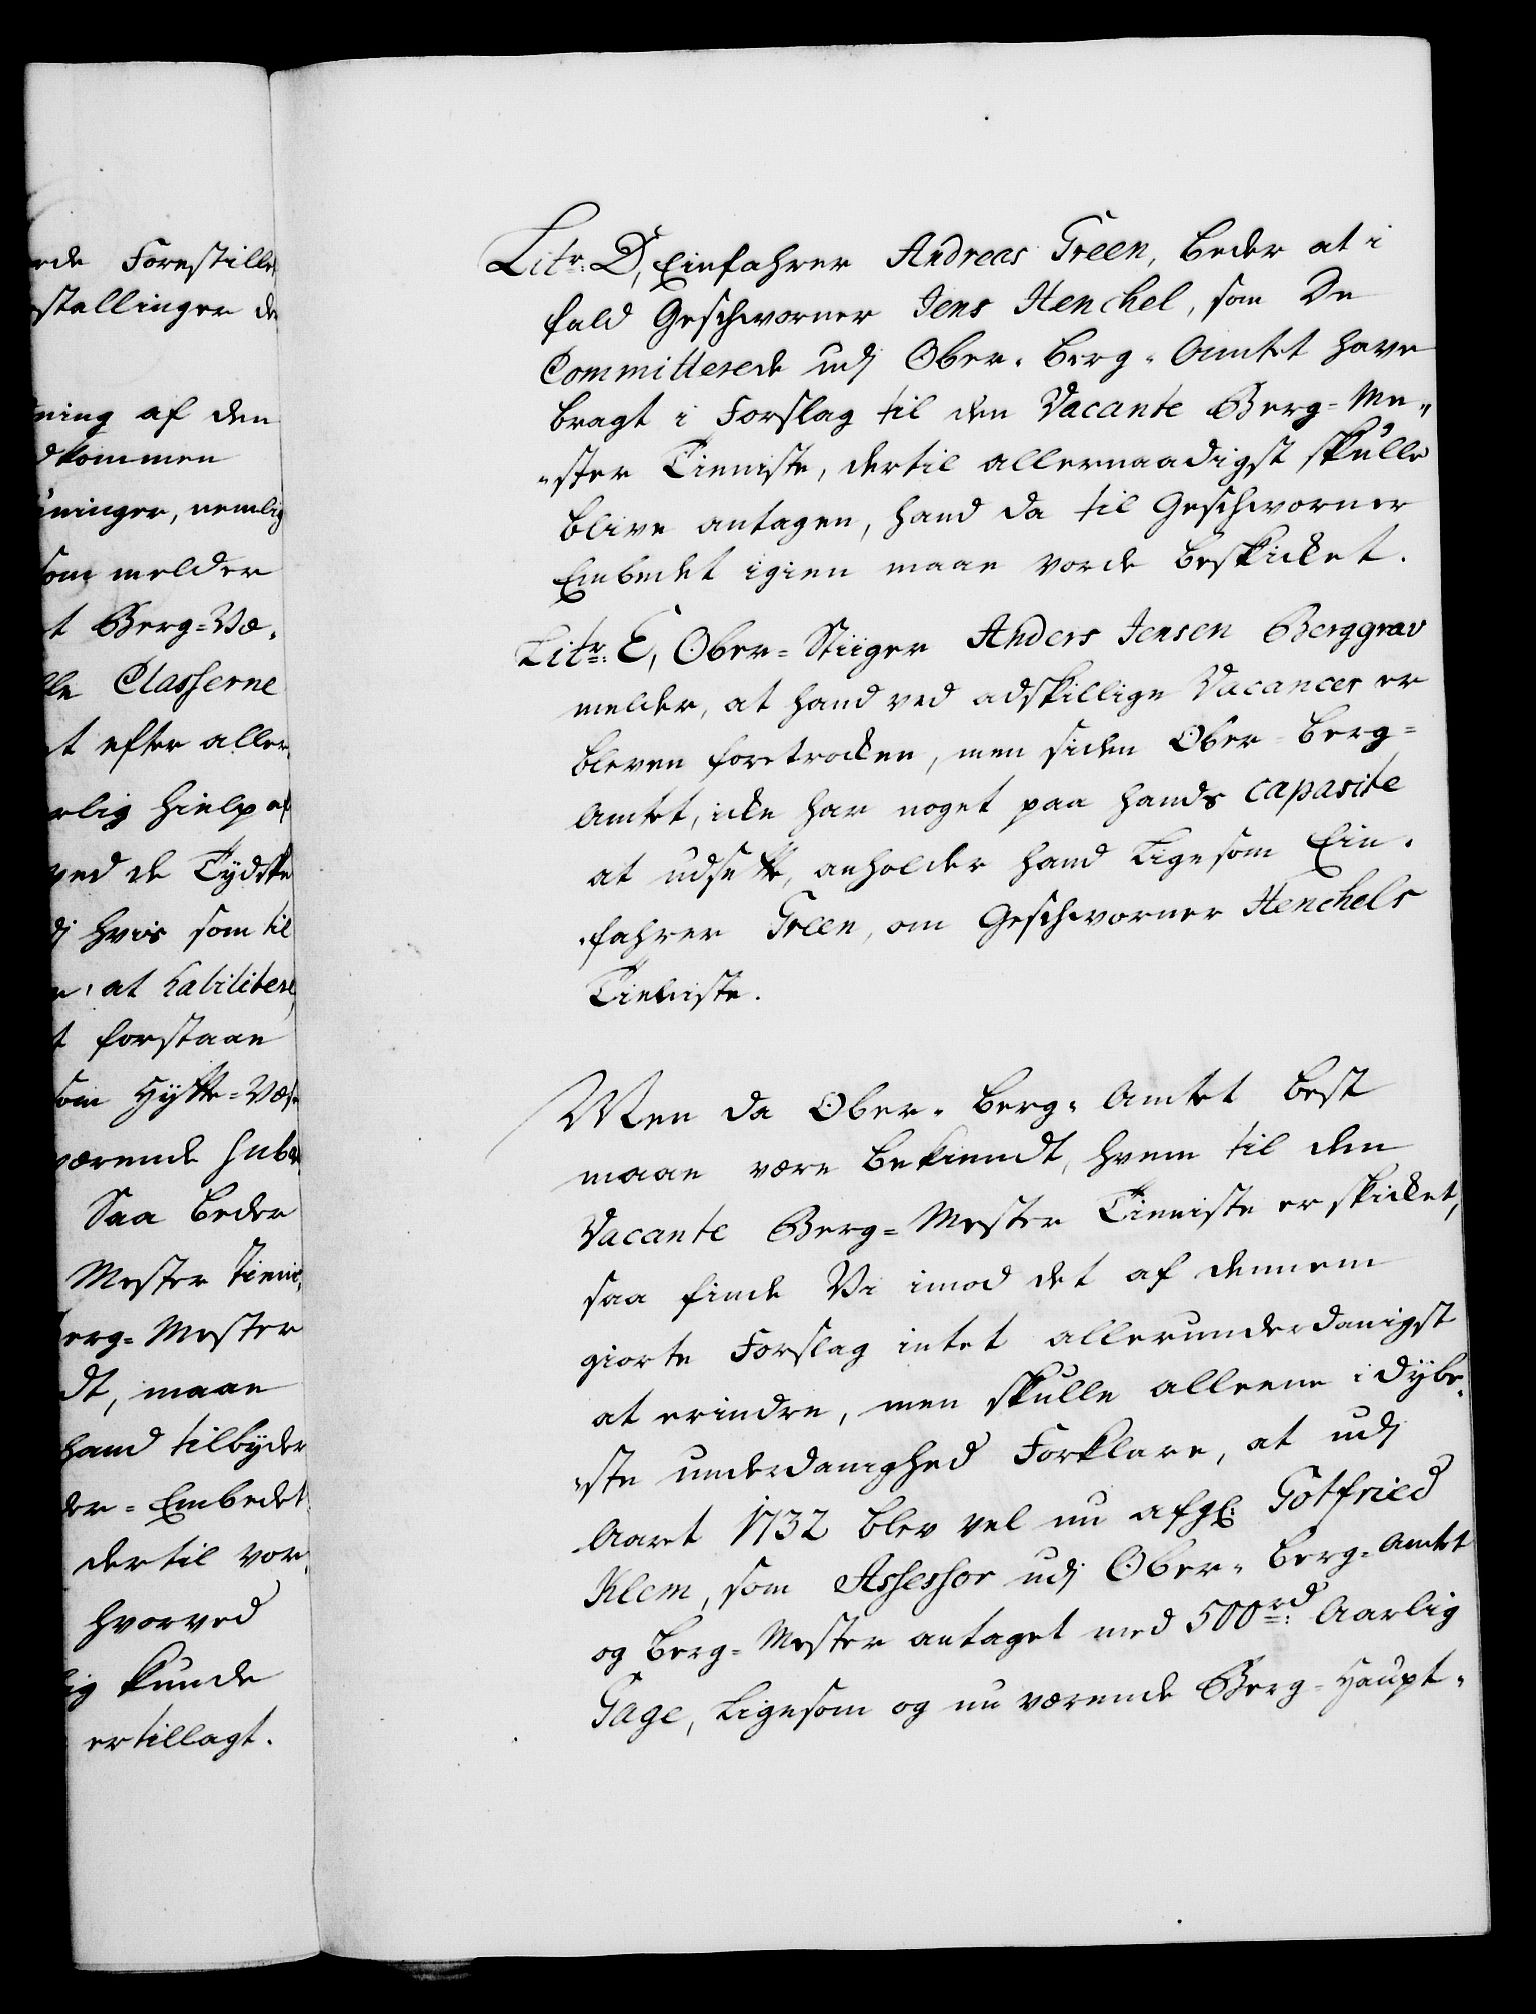 rde Forestille
stallinger de
ning af den
dkommen
ninger, nemlig
som melder
t Berg-Væ,
lle Classerne
t efter aller,
rlig hielp af
ved de Tydske
dj hvis som til
at habilitere,
t forstaae
som Hytte-Væs
værende
Saa beder
Mester Tienis,
erg-Mester
dt, maae
hand tilbyder
der-Embedet
dertil vor,
hvorved
ig kunde
er tillagt.
Litr: D, Einfahrer Andreas Green, beder at i
fald Geschworner Jens Henchel, som De
Committerede udj Ober-berg-Amtet have
bragt i Forslag til den Vacante Berg-Me„
„ster Tieniste, dertil allernaadigst skulle
blive antagen, hand da til Geschworner
Embedet igien maae vorde beskicket.
Litr: E, Ober-Stiiger Anders Jensen Berggrav
melder, at hand ved adskillige Vacancer er
bleven foretrocken, men siden Ober-berg-
Amtet, icke har noget paa hands capasite
at udsette, anholder hand ligesom Ein„
„fahrer Green, om Geschworner Henchels
Tieniste.
Men da Ober-berg-Amtet best
maae være bekiendt, hvem til den
Vacante Berg-Mester Tieniste er skicket,
saa finde Vi imod det af dennem
giorte Forslag intet allerunderdanigst
at erindre, men skulle alleene i dybe„
„ste underdanighed Forklare, at udj
Aaret 1732 blev vel nu afgl: Gotfried
Klem, som Assessor udj Ober-berg-Amtet
og berg-Mester antaget med 500 rd: Aarlig
Gage, ligesom og nu værende Berg-Haupt-